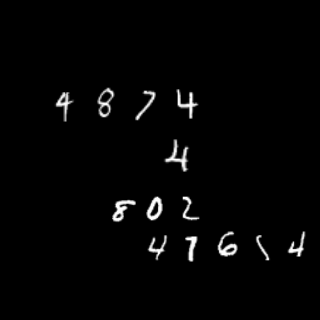 4 8 7 4
4
8 0 2
4 7 6 1 4